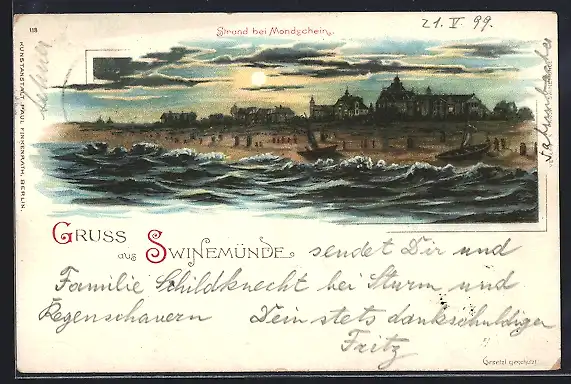 118
Strand bei Mondschein.
21. V. 99.
KUNSTANSTALT PAUL FINKENRATH, BERLIN.
GRUSS aus SWINEMÜNDE sendet Dir und
Familie Schildknecht bei Sturm und
Regenschauern Dein stets dankschuldiger
Fritz
Gesetzl. geschützt.